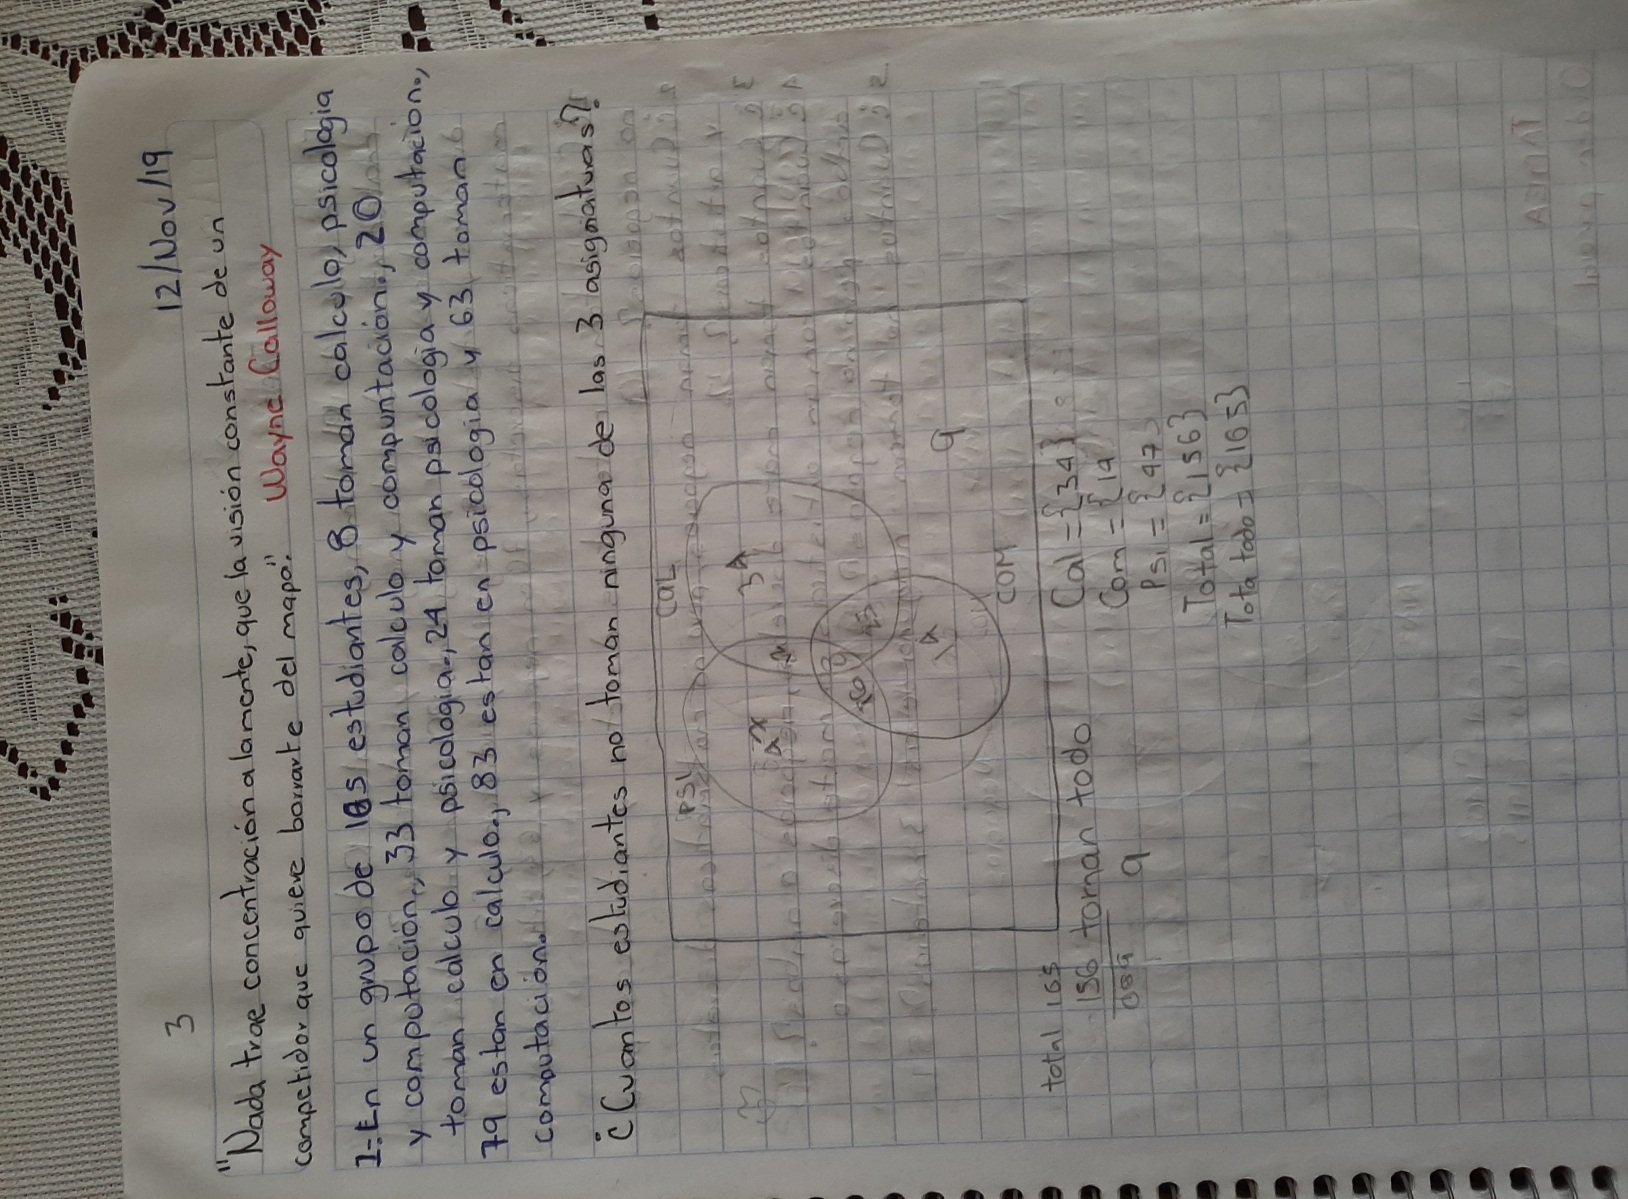 3
12/Nov/19
"Nada trae concentración a la mente, que la visión constante de un
competidor que quiere borrarte del mapa." Wayne Calloway
1:-En un grupo de 165 estudiantes, 8 toman calculo, psicologia
y computación., 33 toman calculo y compuntación., 20
toman calculo y psicologia., 24 toman psicologia y computación.,
79 estan en calculo., 83 estan en psicologia y 63 toman
computación.
¿Cuantos estudiantes no toman ninguna de las 3 asignaturas?
CAL
PSI
COM
34
9
Cal = {34}
Com = {14
Psi = {47}
Total = {156}
Tota todo = {165}
total 165
156 toman todo
009 9